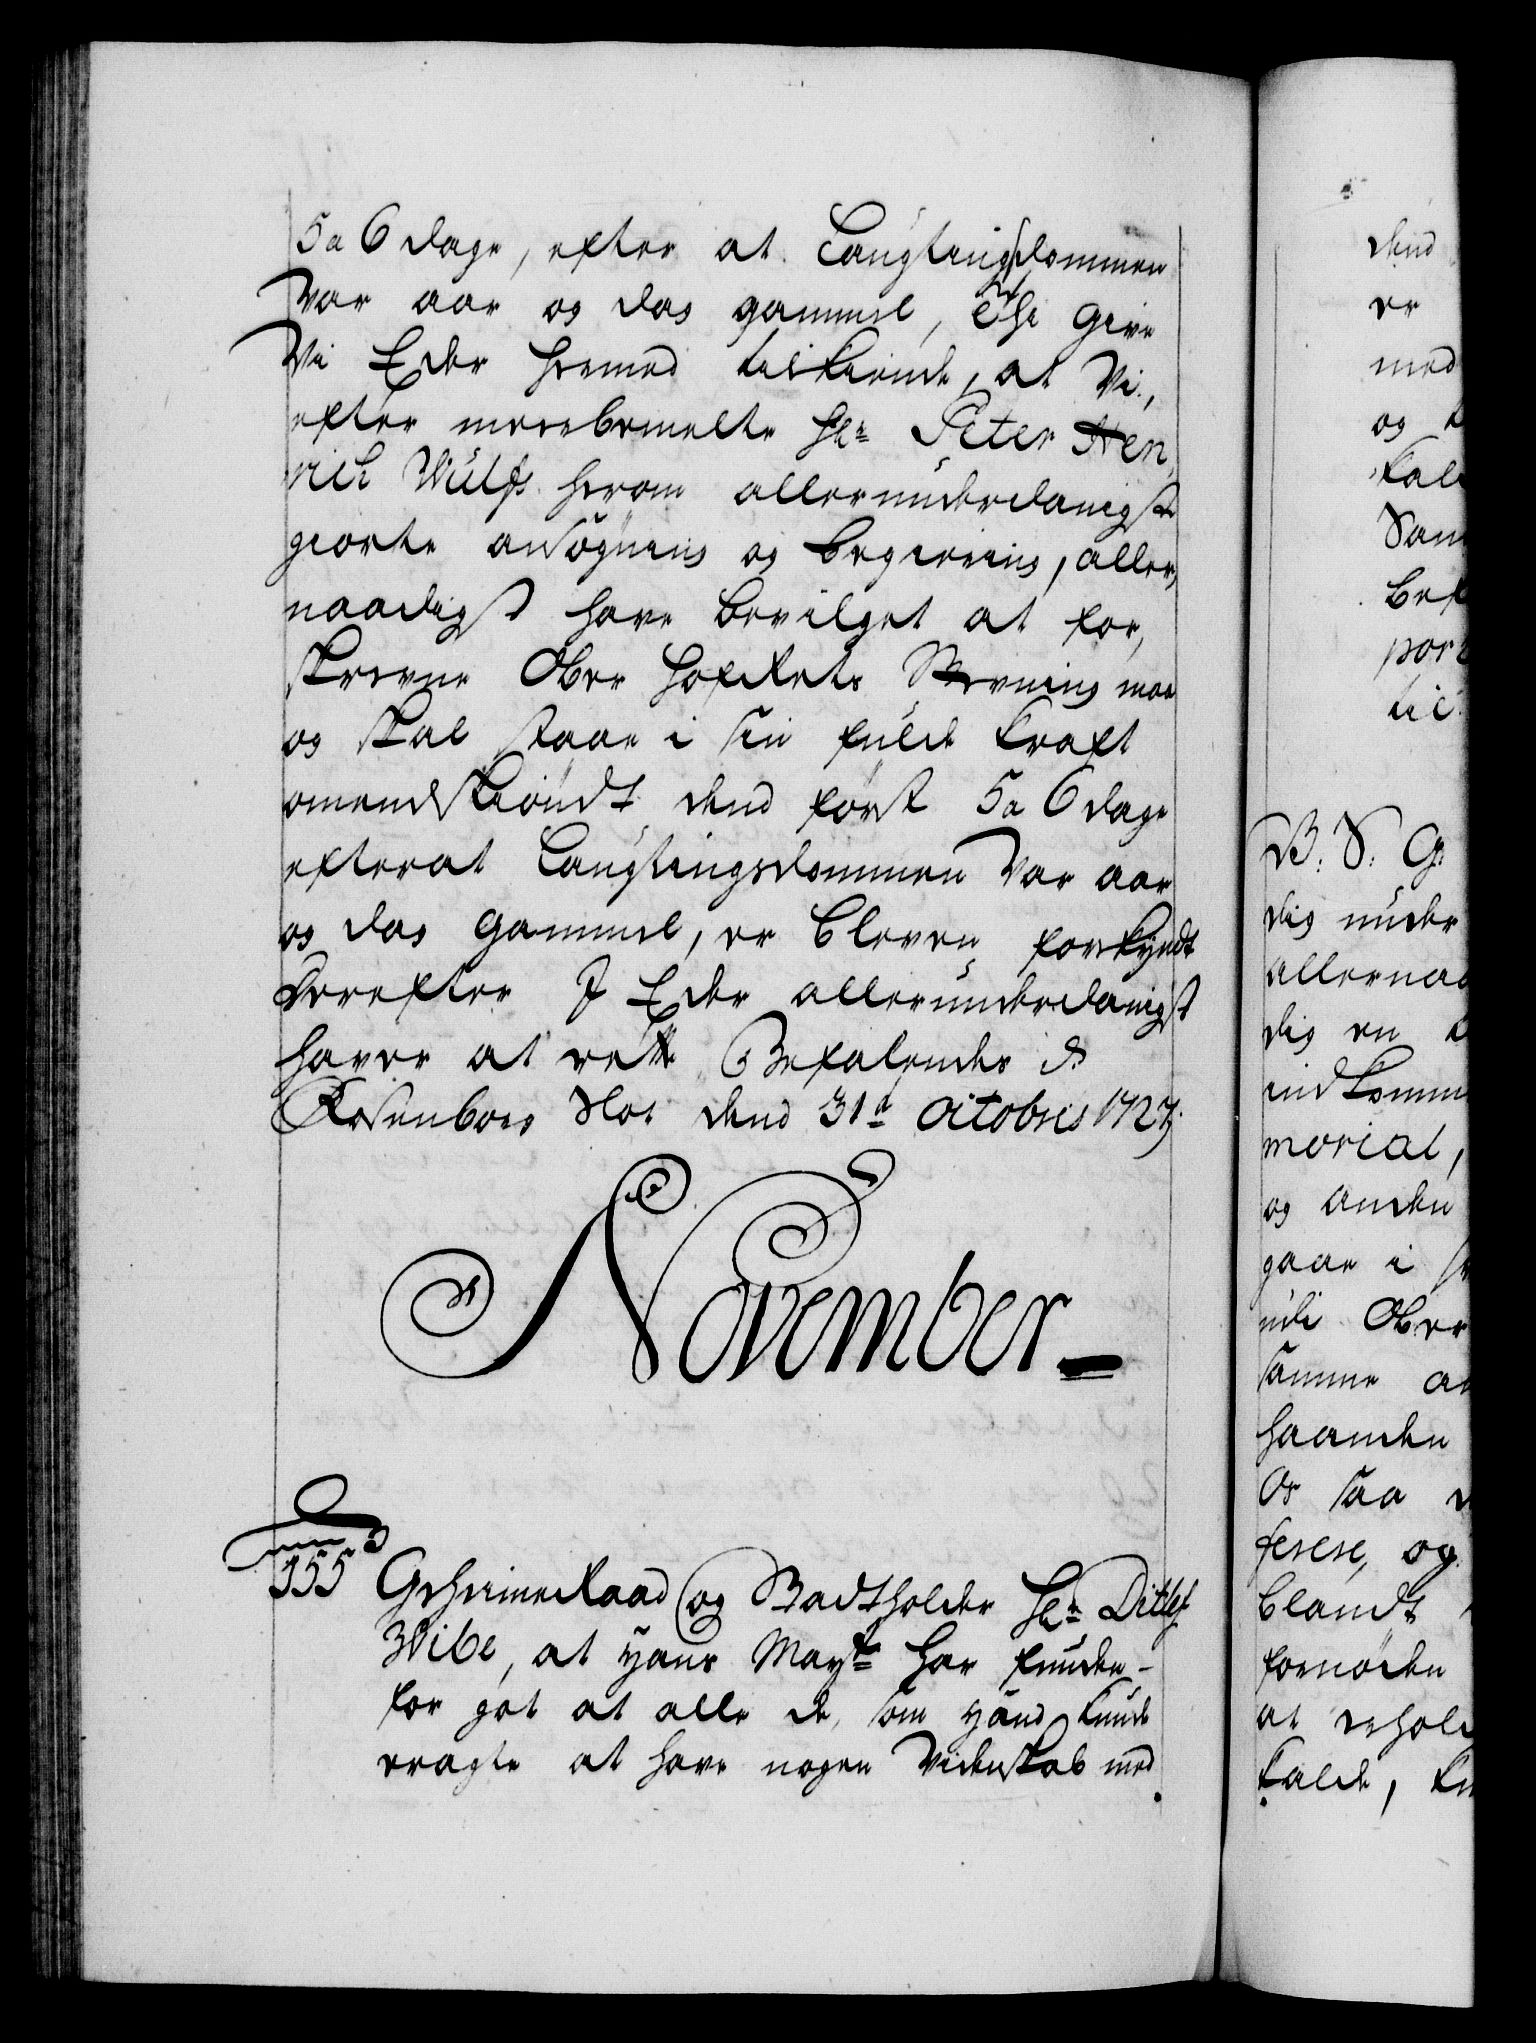 5 a 6 dage, efter at Laugtingsdommen
var aar og dag gammel, Thi give
Vi Eder hermed tilkiende, at Vi,
efter meerbemelte Hr: Peter Hen,
rich Wulfs herom allerunderdanigste
giorte ansögning og begiering, aller,
naadigst have bevilget at for,
skrevne Ober HofRets Stevning maa
og skal staae i sin fulde kraft
omendskiöndt dend först 5 a 6 dage
efterat Laugtingsdommen var aar
og dag gammel, er bleven forkyndt
Derefter I Eder allerunderdanigst
haver at rette Befalendes &
Rosenborg Slot dend 31d Octobris 1727.
November
355 GeheimeRaad og Stadtholder Hr: Ditlef
Wibe, at Hans Mayt: har funden
for got at alle de, som hand kunde
eragte at have nogen Videnskab med
dend
er
med
og
Befa
til
B. S. G.
dig under
allernaa
dig en
indkomm
morial,
og anden
gaae i
udi Ober
samme
haanden
Os saa
ferere, og
blandt
fornöden
at
kalde,